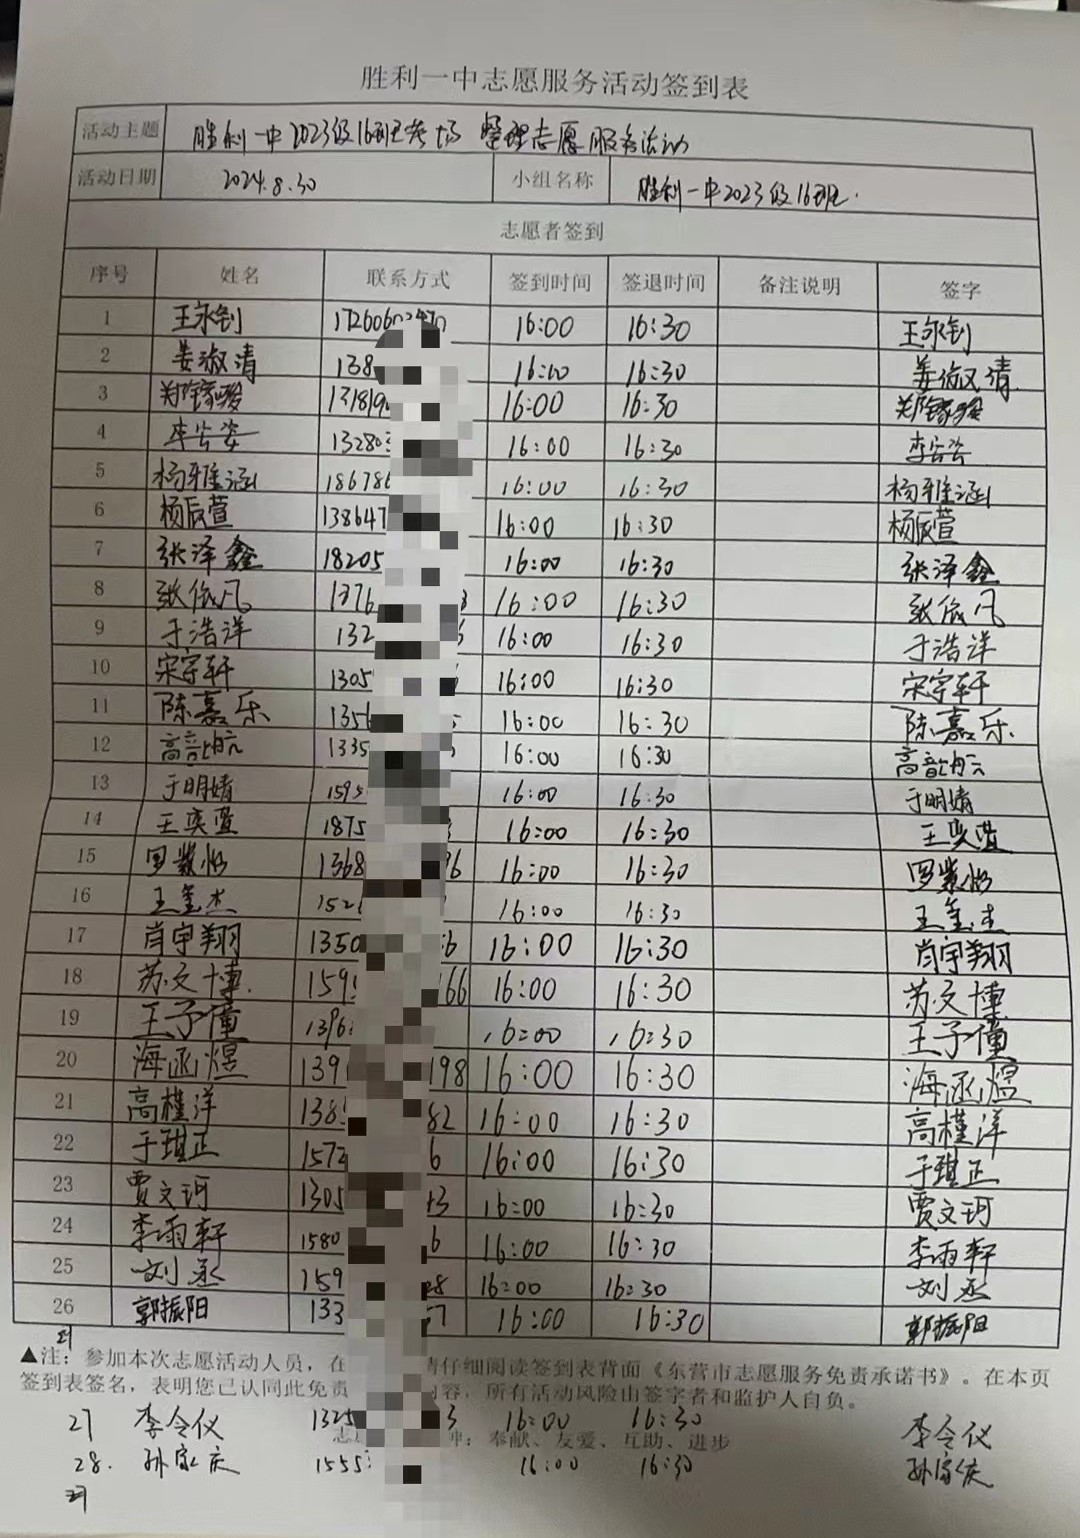 胜利一中志愿服务活动签到表
活动主题 胜利一中2023级16班考场 整理志愿服务活动
活动日期 2024.8.30 小组名称 胜利一中2023级16班.
志愿者签到
序号 姓名 联系方式 签到时间 签退时间 备注说明 签字
1 王永钊 16:00 16:30 王永钊
2 姜淑清 138 16:00 16:30 姜淑清
3 16:00 16:30
4 13280 16:00 16:30
5 杨雅涵 186786 16:00 16:30 杨雅涵
6 杨辰萱 138647 16:00 16:30 杨辰萱
7 张泽鑫 18205 16:00 16:30 张泽鑫
8 张依凡 1376 16:00 16:30 张依凡
9 于浩洋 132 16:00 16:30 于浩洋
10 宋宇轩 1305 16:00 16:30 宋宇轩
11 陈嘉乐 1356 16:00 16:30 陈嘉乐
12 1335 16:00 16:30
13 于明婧 1595 16:00 16:30 于明婧
14 王奕萱 1875 16:00 16:30 王奕萱
15 罗紫怡 1368 96 16:00 16:30 罗紫怡
16 152 16:00 16:30
17 肖宇翔 1350 6 16:00 16:30 肖宇翔
18 苏文博 159 166 16:00 16:30 苏文博
19 王予僮 16:00 16:30 王予僮
20 海函煜 139 198 16:00 16:30 海函煜
21 高槿洋 138 82 16:00 16:30 高槿洋
22 于琪正 1572 6 16:00 16:30 于琪正
23 贾文珂 1305 43 16:00 16:30 贾文珂
24 李雨轩 1580 6 16:00 16:30 李雨轩
25 刘丞 159 28 16:00 16:30 刘丞
26 郭振阳 133 57 16:00 16:30 郭振阳
▲注：参加本次志愿活动人员，在 请仔细阅读签到表背面《东营市志愿服务免责承诺书》。在本页
签到表签名，表明您已认同此免责 内容，所有活动风险由签字者和监护人自负。
27 李令仪 1325 3 16:00 16:30 李令仪
志 神：奉献、友爱、互助、进步
28. 孙家庆 1555 16:00 16:30 孙家庆